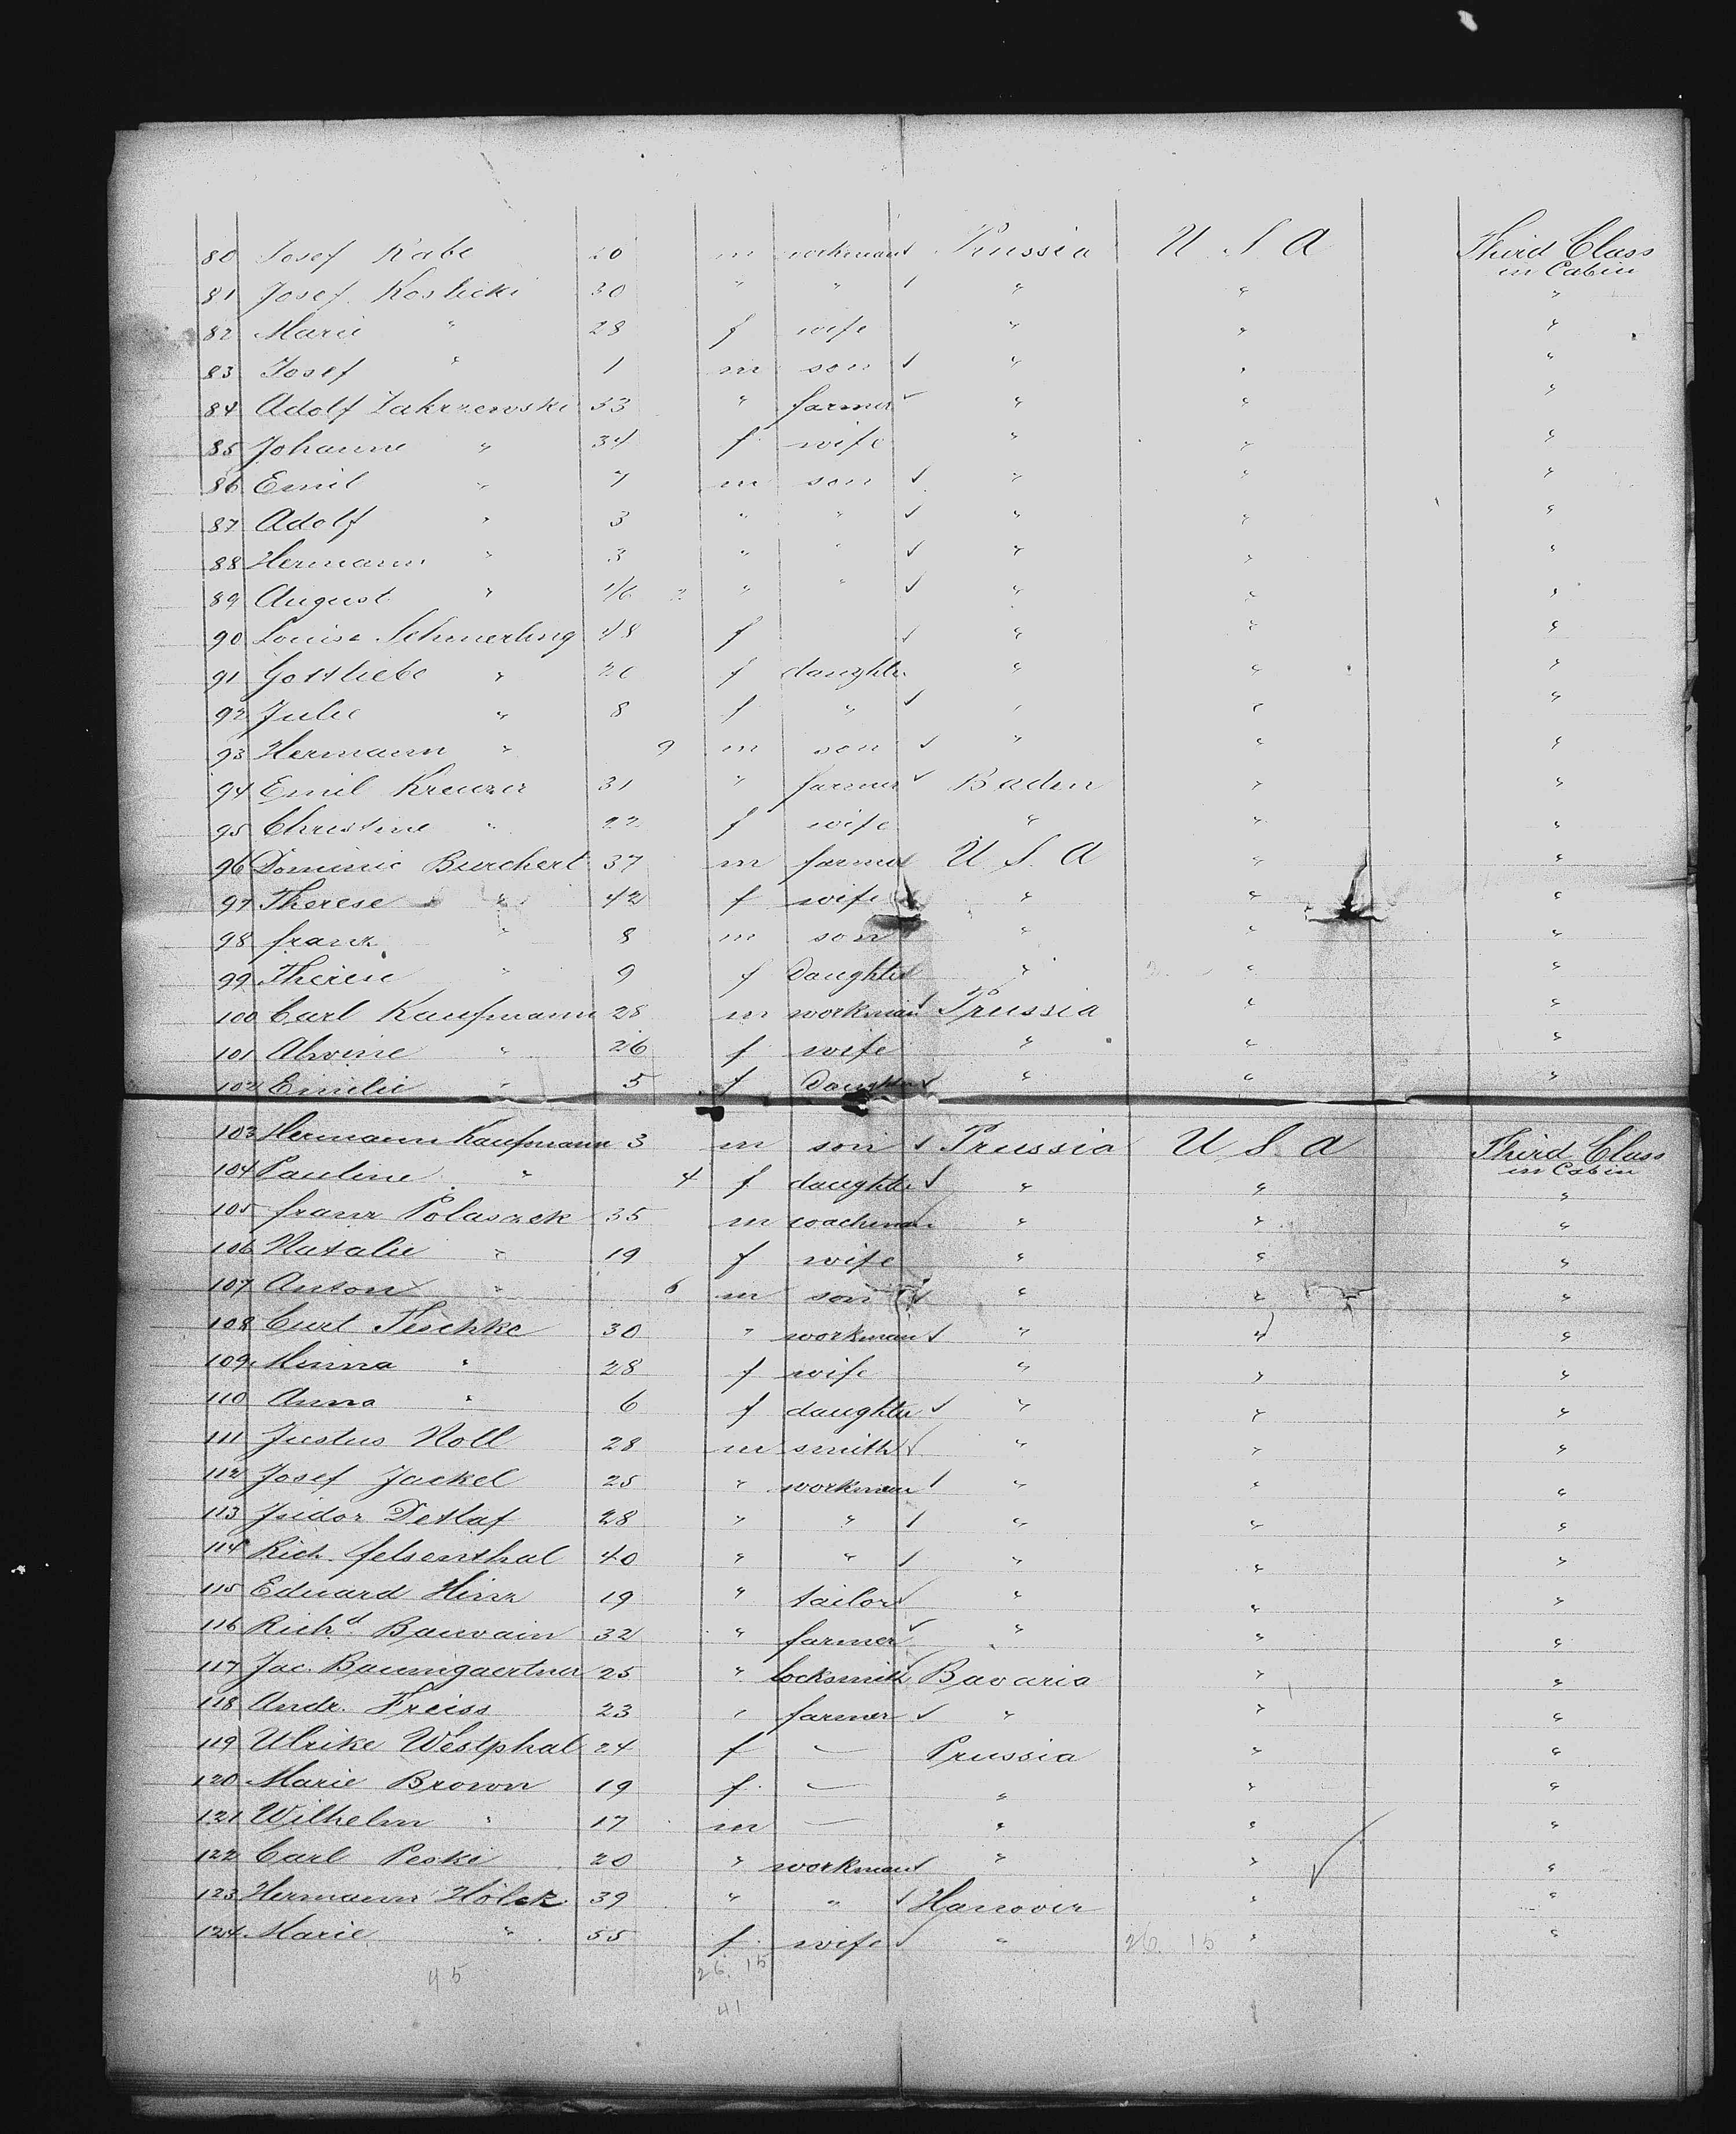 80 Josef Rabe 20 m workman Prussia U S A Third Class in Cabin
81 Josef Koslicki 30 " " " " "
82 Marie " 28 f wife " " "
83 Josef " 1 m son " " "
84 Adolf Zakrzewski 33 " farmer " " "
85 Johanne " 34 f wife " " "
86 Emil " 7 m son " " "
87 Adolf " 3 " " " " "
88 Hermann " 3 " " " " "
89 August " 1/6 2 " " " " "
90 Louise Schmerling 48 f " " "
91 Gottliebe " 20 f daughter " " "
92 Julie " 8 f " " " "
93 Hermann " 9 m son " " "
94 Emil Kreuzer 31 " farmer Baden " "
95 Christine " 22 f wife " " "
96 Dominic Burchert 37 m farmer U S. A " "
97 Therese " 42 f wife " " "
98 franz " 8 m son " " "
99 Therese " 9 f Daughter " " "
100 Carl Kaufmann 28 m workman Prussia " "
101 Alwine " 26 f wife " " "
102 Emilie " 5 f Daughter " " "
103 Hermann Kaufmann 3 m son Prussia U S. A Third Class in Cabin
104 Pauline " 4 f daughter " " "
105 franz Polaszek 35 m coachman " " "
106 Natalie " 19 f wife " " "
107 Anton " 6 m son " " "
108 Curt Teschke 30 " workman " " "
109 Minna " 28 f wife " " "
110 Anna " 6 f daughter " " "
111 Justus Noll 28 m smith " " "
112 Josef Jackel 25 " workman " " "
113 Isidor Detlaf 28 " " " " "
114 Rich. felsenthal 40 " " " " "
115 Eduard Hinz 19 " tailor " " "
116 Richd. Bauvain 32 " farmer " " "
117 Jac. Baumgaertner 25 " locksmith Bavaria " "
118 Andr. Freiss 23 " farmer " " "
119 Ulrike Westphal 24 f — Prussia " "
120 Marie Brown 19 f. — " " "
121 Wilhelm " 17 m — " " "
122 Carl Peski 20 " workman " " "
123 Hermann Hölck 39 " " Hanover " "
124 Marie " 55 f. wife " 26. 15 " "
45 26. 15
41